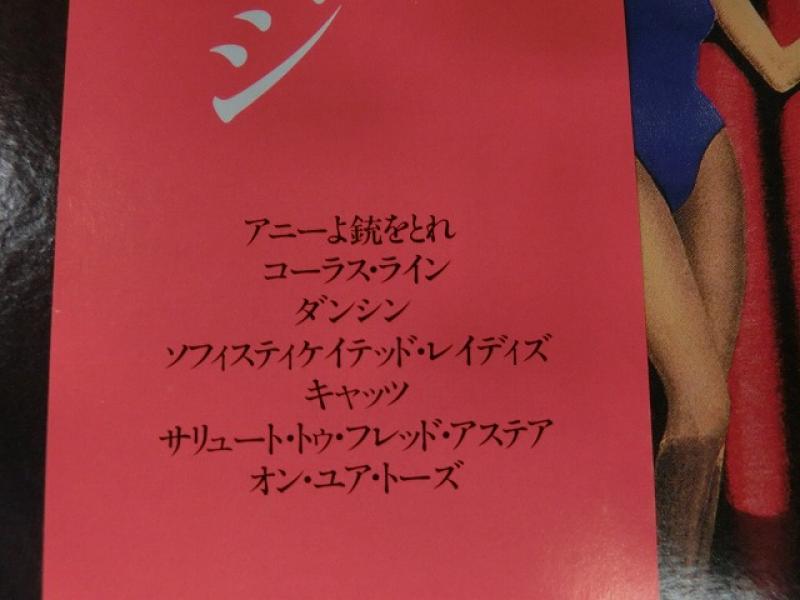 ジ
アニーよ銃をとれ
コーラス・ライン
ダンシン
ソフィスティケイテッド・レイディズ
キャッツ
サリュート・トゥ・フレッド・アステア
オン・ユア・トーズ